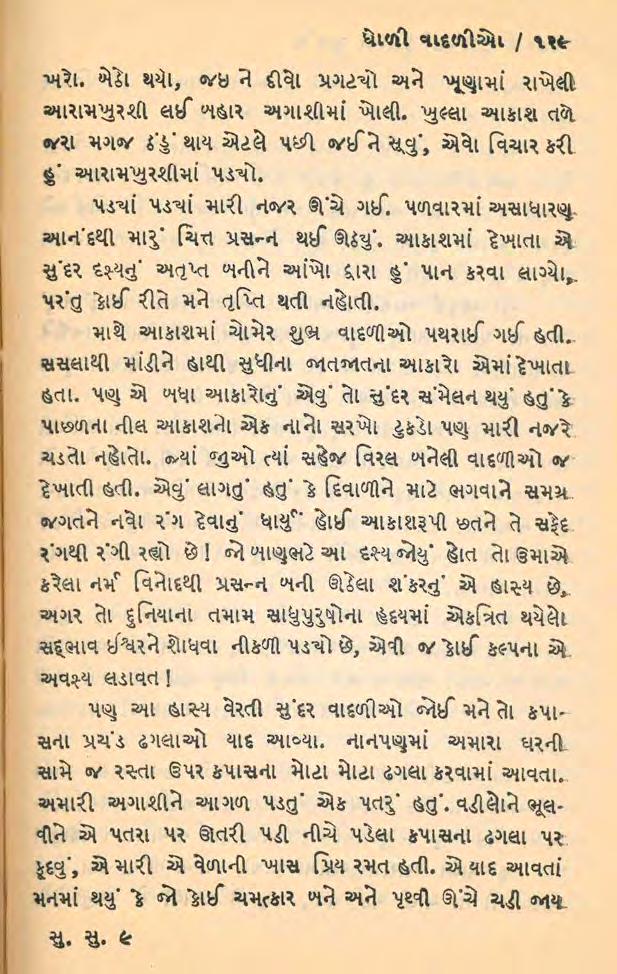 ધોળી વાદળીઓ / ૧૨૯
ખરો. બેઠો થયો, જઇ ને દીવો પ્રગટચો અને ખૂણામાં રાખેલી
આરામખુરશી લઈ બહાર અગાશીમાં ખોલી. ખુલ્લા આકાશ તળે
જરા મગજ ઠંડું થાય એટલે પછી જઈ ને સૂવું, એવો વિચાર કરી
હું આરામખુરશીમાં પડચો.
પડચાં પડચાં મારી નજર ઊંચે ગઈ. પળવારમાં અસાધારણ
આનંદથી મારું ચિત્ત પ્રસન્ન થઈ ઊઠયું. આકાશમાં દેખાતા એ
સુંદર દૃશ્યનું અતૃપ્ત બનીને આંખો દ્વારા હું પાન કરવા લાગ્યો,
પરંતુ કોઈ રીતે મને તૃપ્તિ થતી નહોતી.
માથે આકાશમાં ચોમેર શુભ્ર વાદળીઓ પથરાઈ ગઈ હતી.
સસલાથી માંડીને હાથી સુધીના જાતજાતના આકારો એમાં દેખાતા
હતા. પણ એ બધા આકારોનું એવું તો સુંદર સંમેલન થયું હતું કે
પાછળના નીલ આકાશનો એક નાનો સરખો ટુકડો પણ મારી નજરે
ચડતો નહોતો. જ્યાં જુઓ ત્યાં સહેજ વિરલ બનેલી વાદળીઓ જ
દેખાતી હતી. એવું લાગતું હતું કે દિવાળીને માટે ભગવાને સમગ્ર
જગતને નવો રંગ દેવાનું ધાર્યું હોઈ આકાશરૂપી છતને તે સફેદ
રંગથી રંગી રહ્યો છે! જો બાણભટે આ દૃશ્ય જોયું હોત તો ઉમાએ
કરેલા નર્મ વિનોદથી પ્રસન્ન બની ઊઠેલા શંકરનું એ હાસ્ય છે,
અગર તો દુનિયાના તમામ સાધુપુરુષોના હૃદયમાં એકત્રિત થયેલો
સદ્ભાવ ઈશ્વરને શોધવા નીકળી પડચો છે, એવી જ કોઈ કલ્પના એ
અવશ્ય લડાવત!
પણ આ હાસ્ય વેરતી સુંદર વાદળીઓ જોઈ મને તો કપા-
સના પ્રચંડ ઢગલાઓ યાદ આવ્યા. નાનપણમાં અમારા ઘરની
સામે જ રસ્તા ઉપર કપાસના મોટા મોટા ઢગલા કરવામાં આવતા.
અમારી અગાશીને આગળ પડતું એક પતરું હતું. વડીલોને ભૂલ-
વીને એ પતરા પર ઊતરી પડી નીચે પડેલા કપાસના ઢગલા પર
કૂદવું, એ મારી એ વેળાની ખાસ પ્રિય રમત હતી. એ યાદ આવતાં
મનમાં થયું કે જો કોઈ ચમત્કાર બને અને પૃથ્વી ઊંચે ચડી જાય
સુ. સુ. ૯